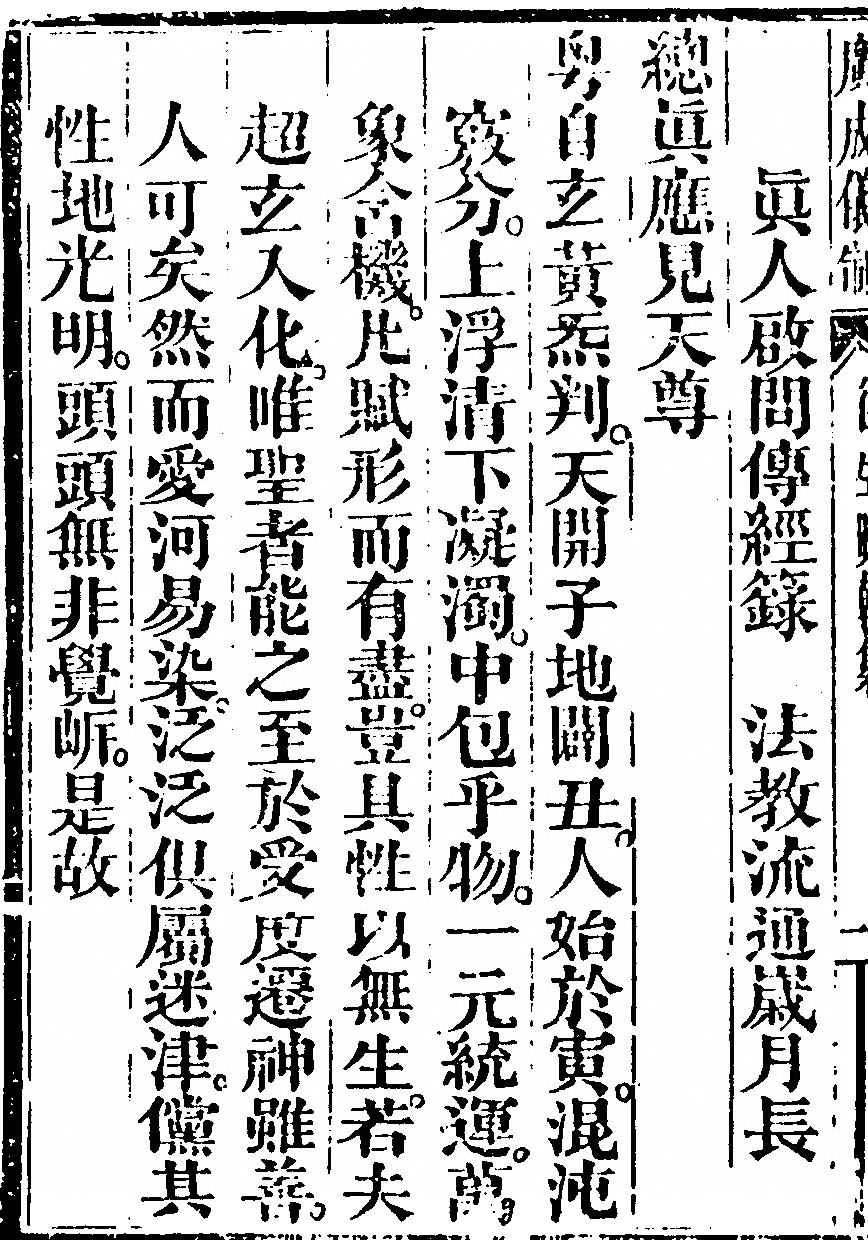 廣成儀制
眞人啟問傳經籙　法教流通歲月長
總眞應見天尊
粤自玄黃炁判。天開子地闢丑。人始於寅。混沌
竅分。上浮清下凝濁。中包乎物。一元統運。萬
象含機。凡賦形而有盡。豈具性以無生。若夫
超玄入化。唯聖者能之至於受度遷神雖善。
人可矣然而愛河易染。泛泛俱屬迷津。儻其
性地光明。頭頭無非覺岍。是故